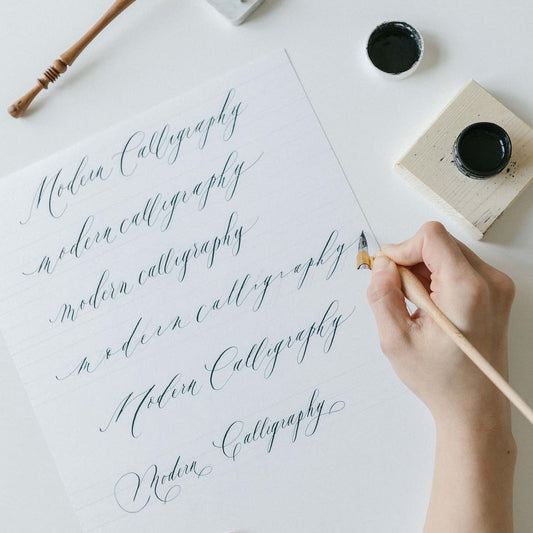 Modern Calligraphy
modern calligraphy
modern calligraphy
modern calligraphy
Modern Calligraphy
Modern Calligraphy